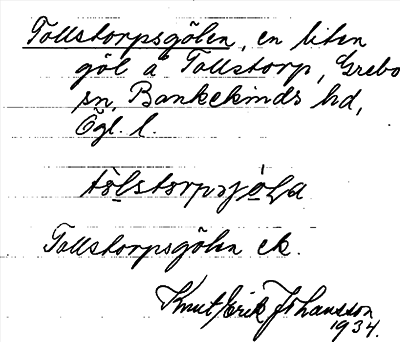 Tollstorpsgölen, en liten
göl å Tollstorp, Grebo
sn, Bankekinds hd,
Ögl. l.
tòlstorpsjö̀la
Tollstorpsgölen ek.
Knut Erik Johansson
1934.